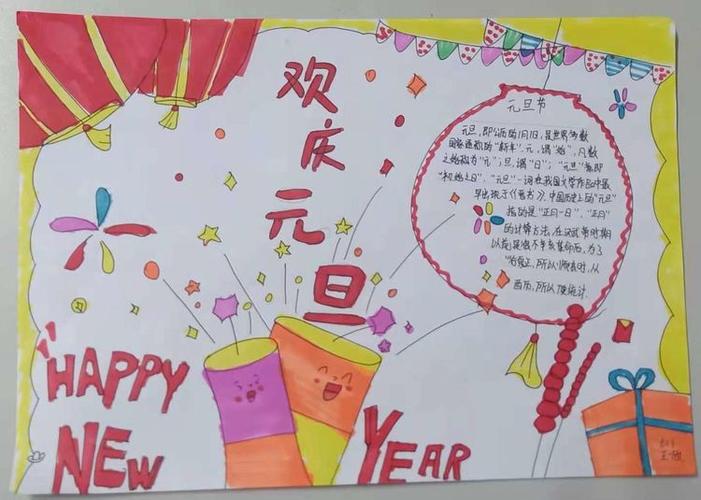 欢庆元旦
元旦节
元旦,即公历的1月1日,是世界多数
国家通称的“新年”.元,谓“始”,凡数
之始称为“元”;旦,谓“日”;“元旦”
“初始之日”.“元旦”一词在我国文学作品中最
早出现于《晋书》.中国历史上的“元旦”
指的是“正月一日”.“正月”
的计算方法,在汉武帝时期
以前是很不
所以
所以
HAPPY
NEW
YEAR